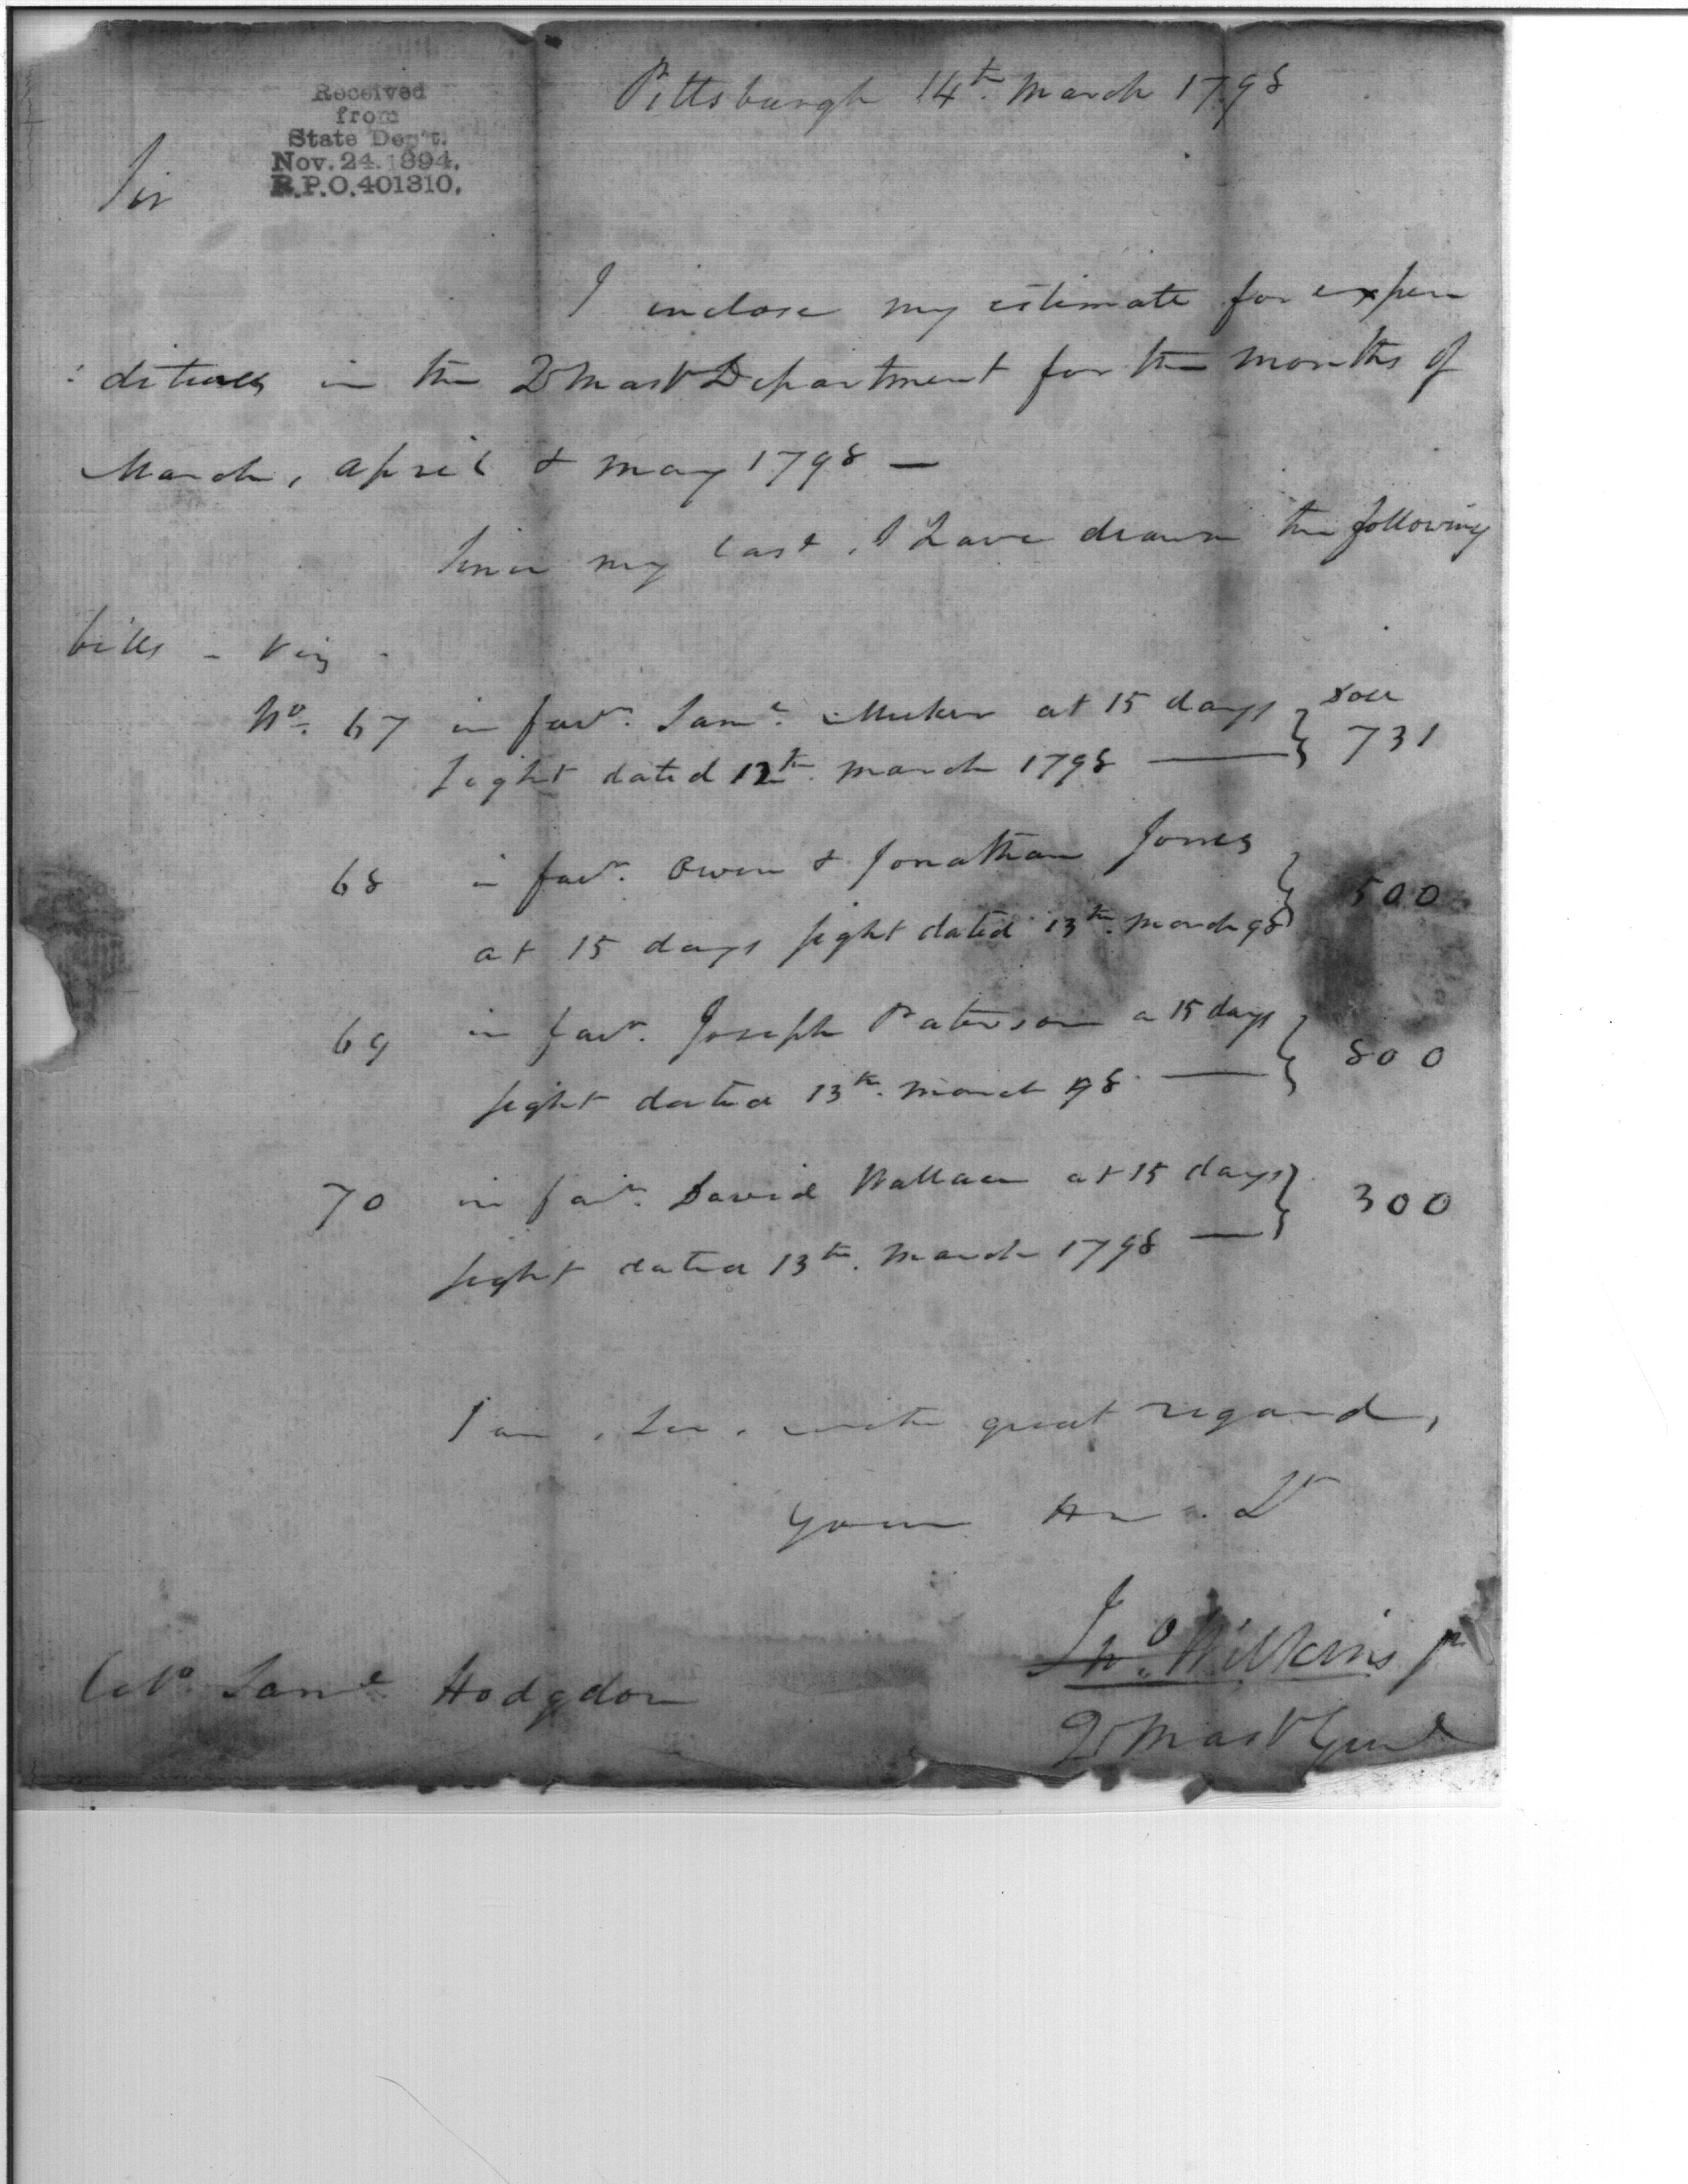 Pittsburgh 14th. March 1798
Received
from
State Dep't.
Nov. 24. 1894.
R.P.O. 401310.
Sir
I inclose my estimate for expen
: ditures in the Qr Mastr Department for the months of
March, April & May 1798 —
Since my last, I have drawn the following
bills - Viz -
No. 67 in favr. Saml. Meeker at 15 days } Doll
sight dated 12th. March 1798 — } 731
68 in favr. Owen & Jonathan Jones
at 15 days sight dated 13th. March 98 } 500
69 in favr. Joseph Paterson a 15 days
sight dated 13th. March 98 — } 800
70 in favr. David Wallace at 15 days
sight dated 13th. March 1798 — } 300
I am, Sir, with great regard,
Your Hu. St
Jno. Wilkins jr
Colo. Saml Hodgdon
Qr Mastr Genl